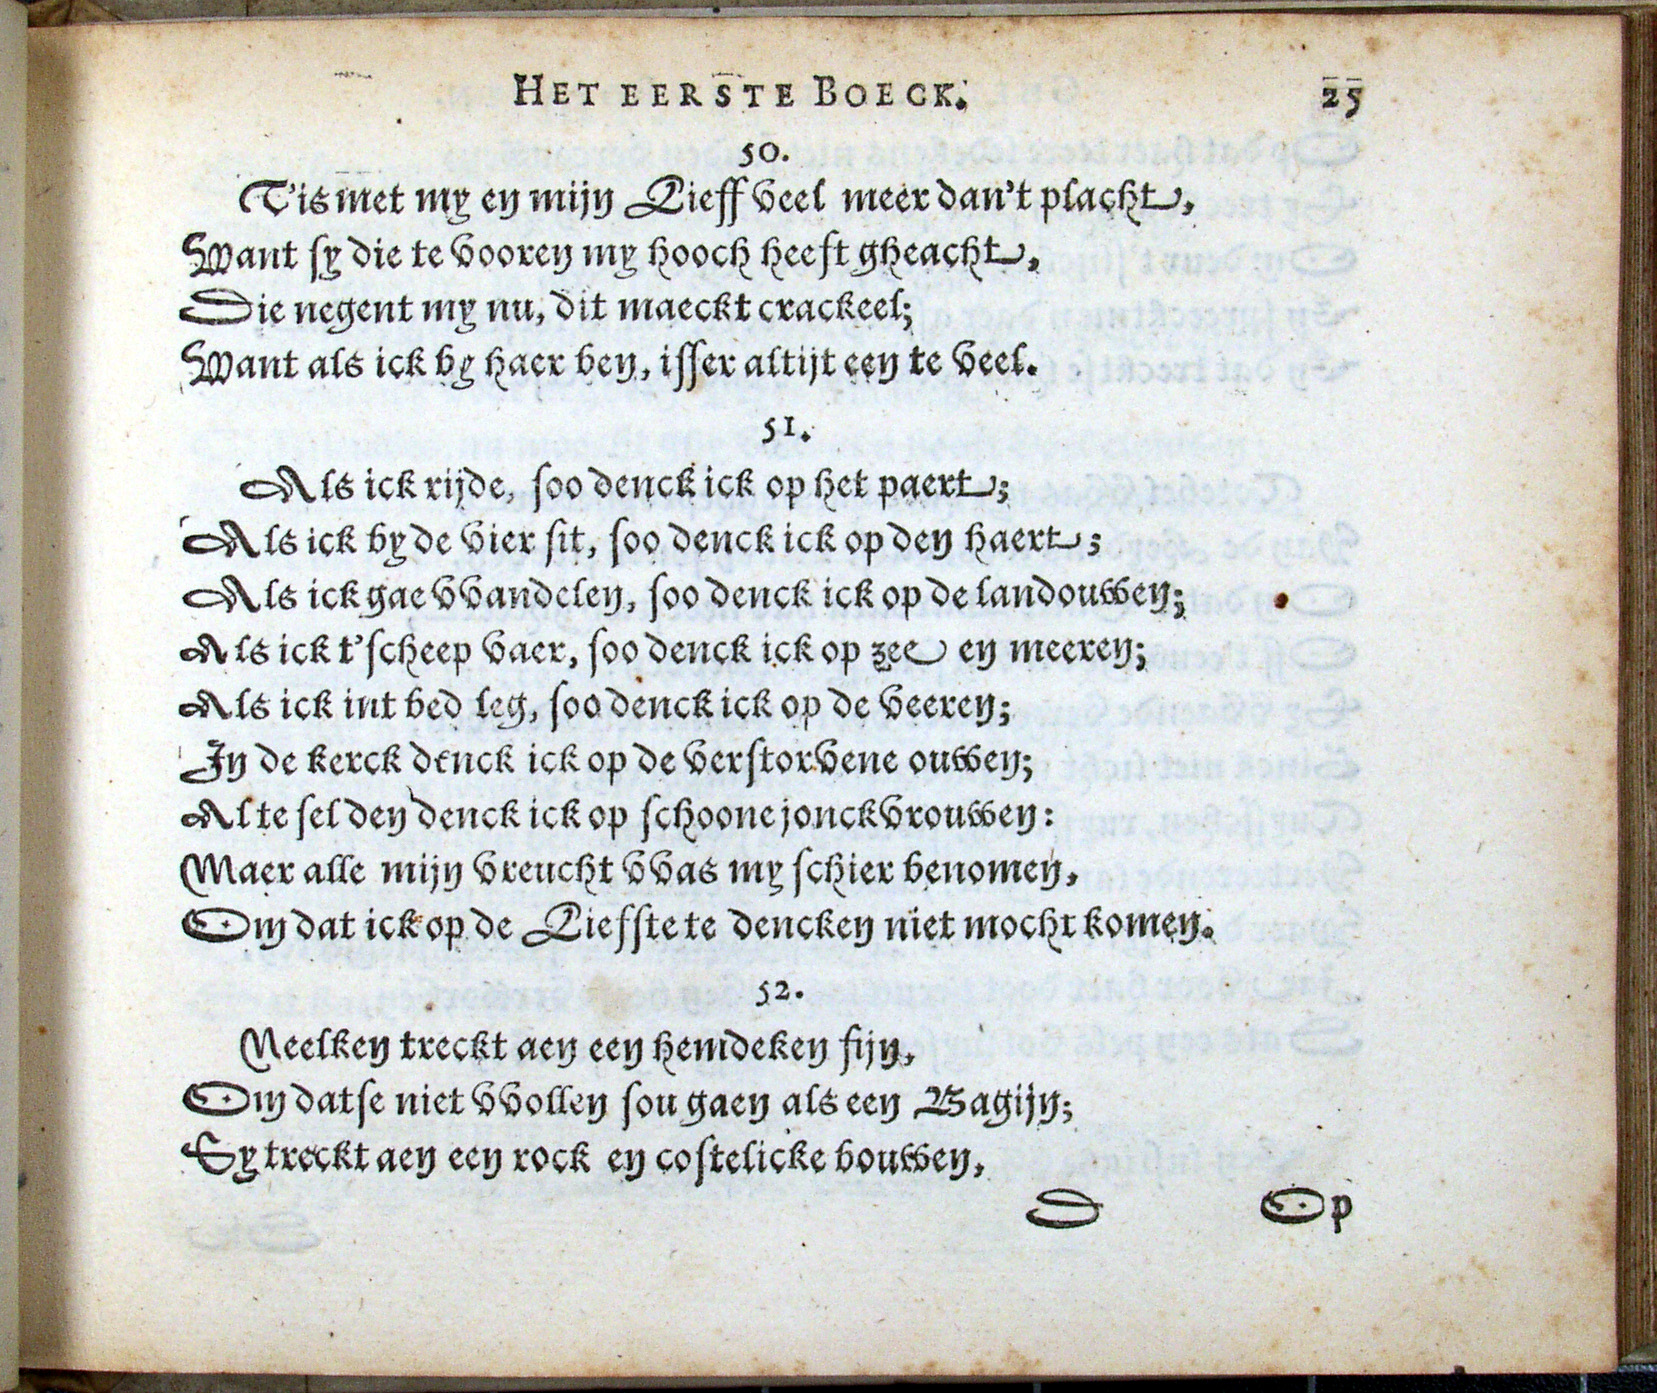 HET EERSTE BOECK.
25
50.
T'is met my en mijn Lieff veel meer dan't placht,
Want sy die te vooren my hooch heeft gheacht,
Die negent my nu, dit maeckt crackeel;
Want als ick by haer ben, isser altijt een te veel.
51.
Als ick rijde, soo denck ick op het paert;
Als ick by de vier sit, soo denck ick op den haert;
Als ick gae vvandelen, soo denck ick op de landouwen;
Als ick t'scheep vaer, soo denck ick op zee en meeren;
Als ick int bed leg, soo denck ick op de veeren;
In de kerck denck ick op de verstorvene ouwen;
Al te selden denck ick op schoone jonckvrouwen:
Maer alle mijn vreucht vvas my schier benomen,
Om dat ick op de Liefste te dencken niet mocht komen.
52.
Neelken treckt aen een hemdeken fijn,
Om datse niet vvollen sou gaen als een Bagijn;
Sy treckt aen een rock en costelicke bouwen,
D
Op